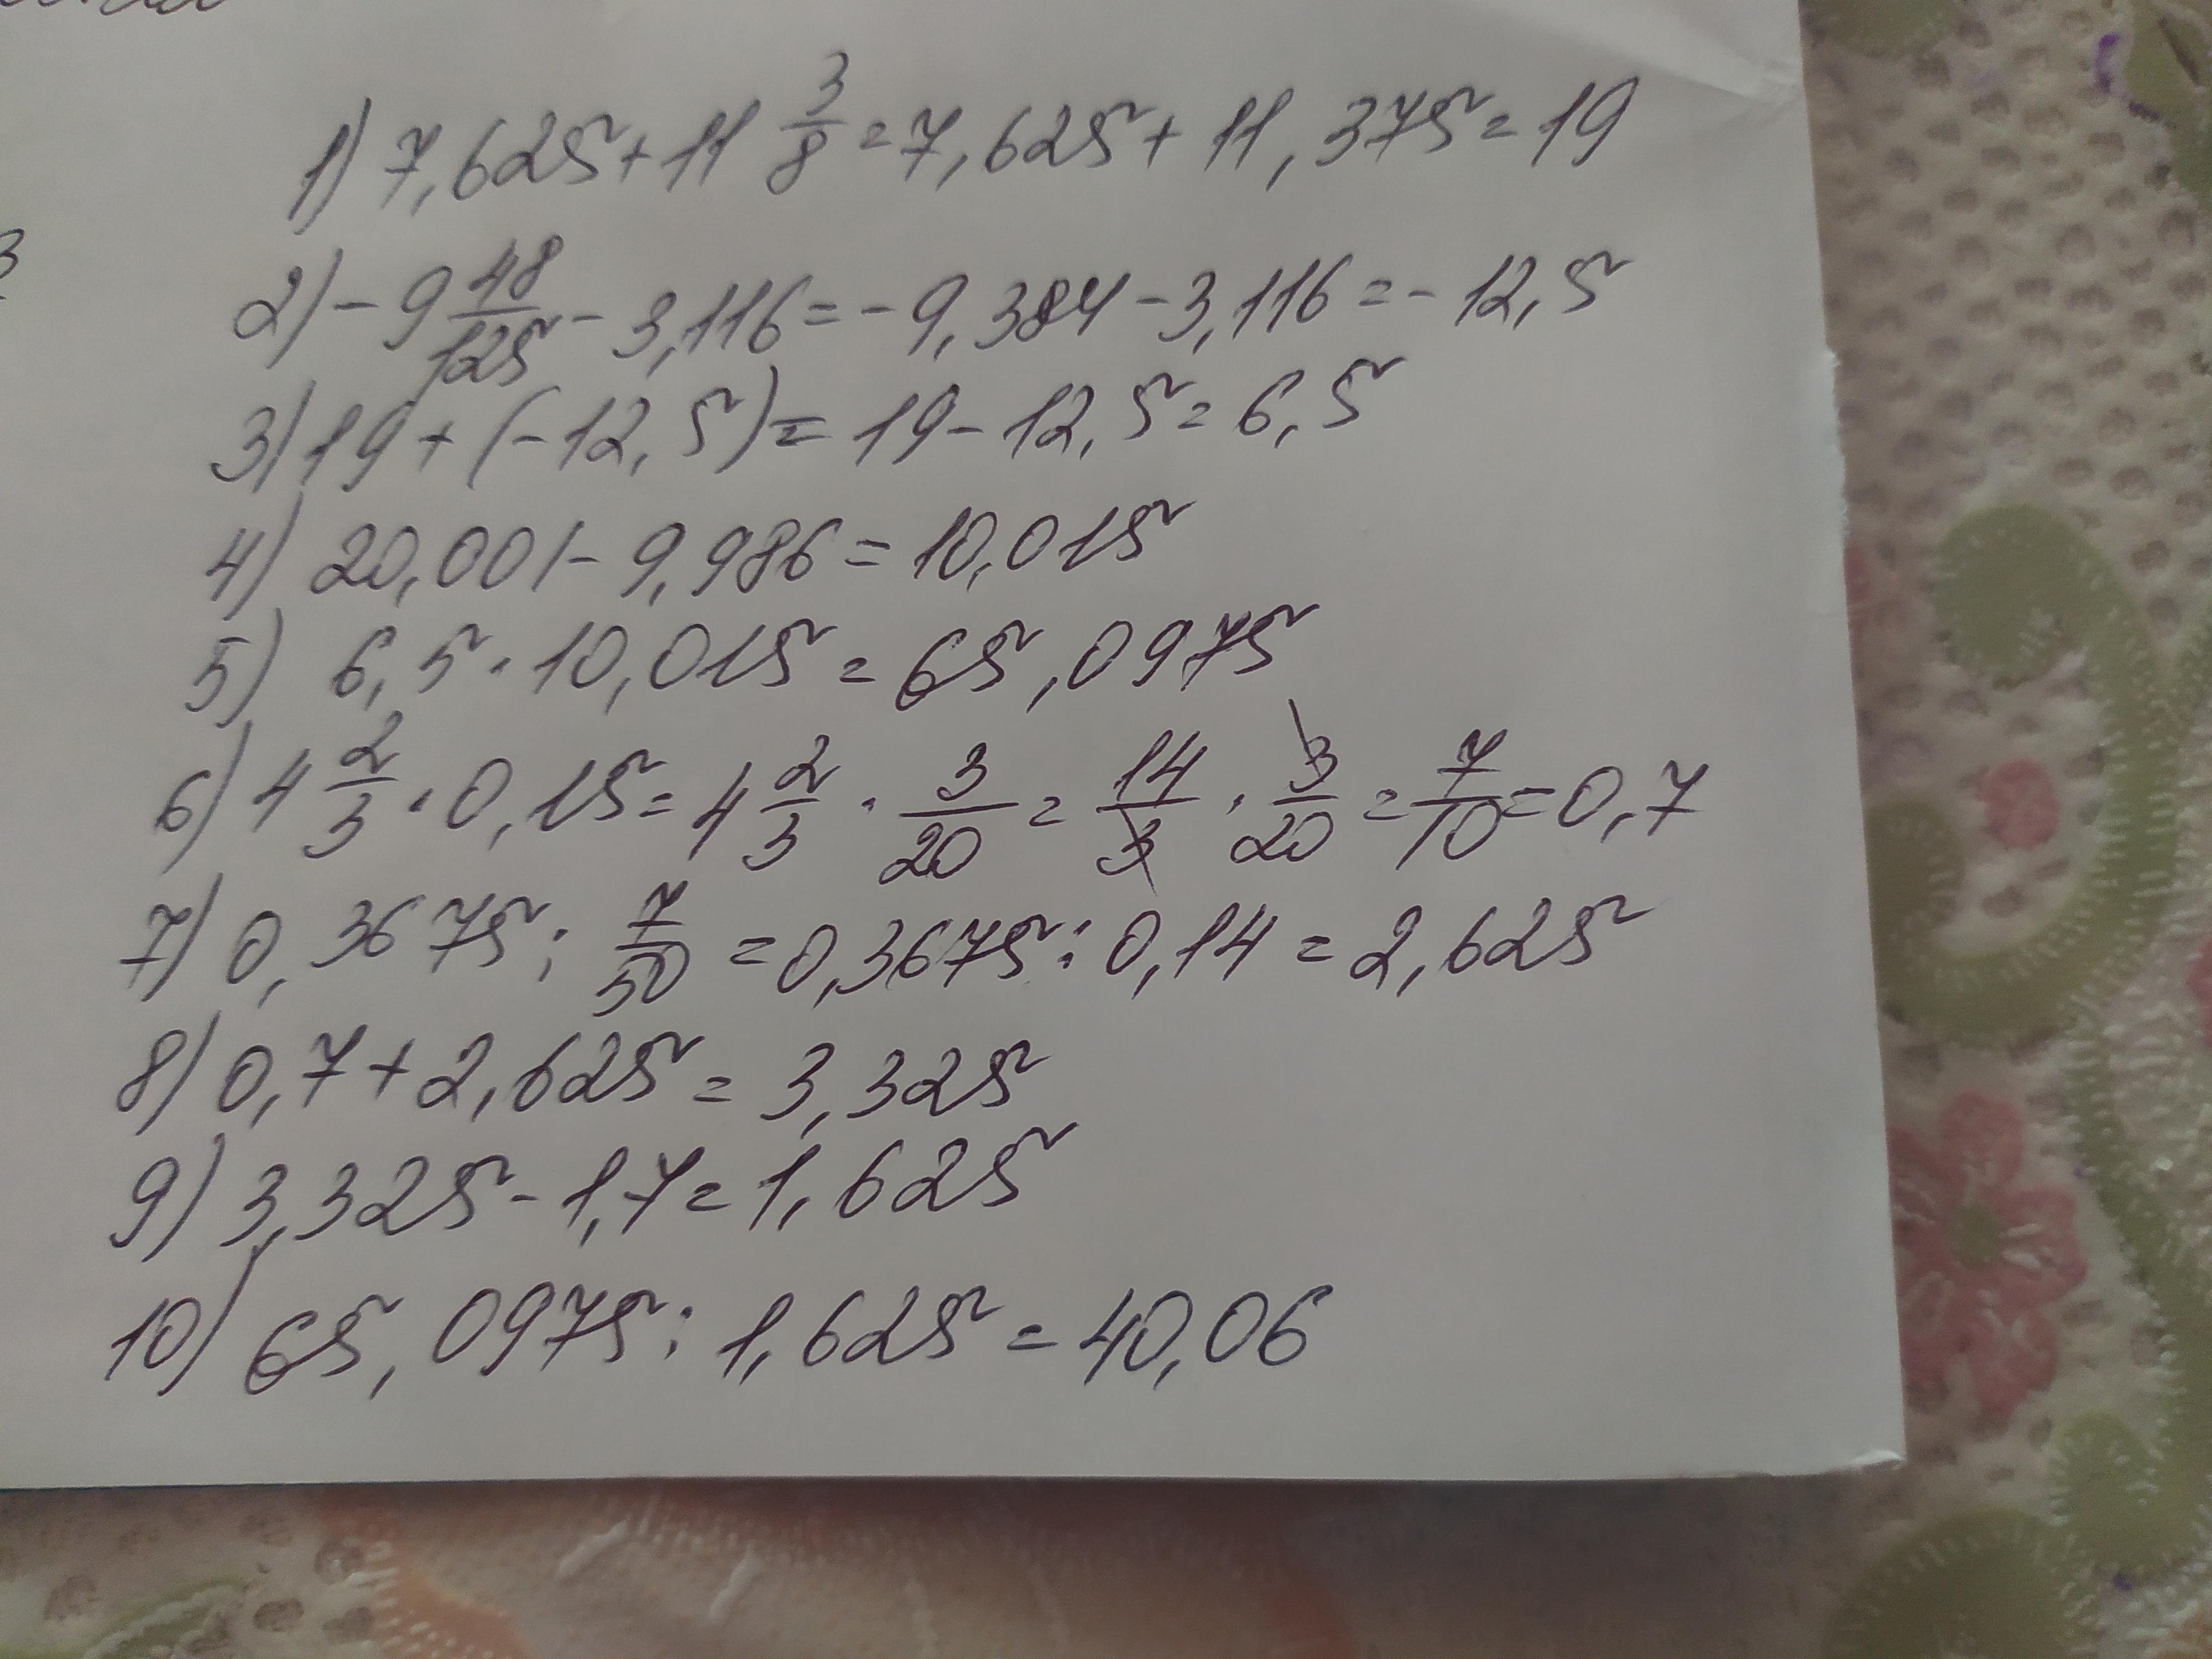 1) 7,625 + 11 3/8 = 7,625 + 11,375 = 19
2) - 9 48/125 - 3,116 = - 9,384 - 3,116 = - 12,5
3) 19 + (-12,5) = 19 - 12,5 = 6,5
4) 20,001 - 9,986 = 10,015
5) 6,5 · 10,015 = 65,0975
6) 4 2/3 · 0,15 = 4 2/3 · 3/20 = 14/3 · 3/20 = 7/10 = 0,7
7) 0,3675 : 7/50 = 0,3675 : 0,14 = 2,625
8) 0,7 + 2,625 = 3,325
9) 3,325 - 1,7 = 1,625
10) 65,0975 : 1,625 = 40,06